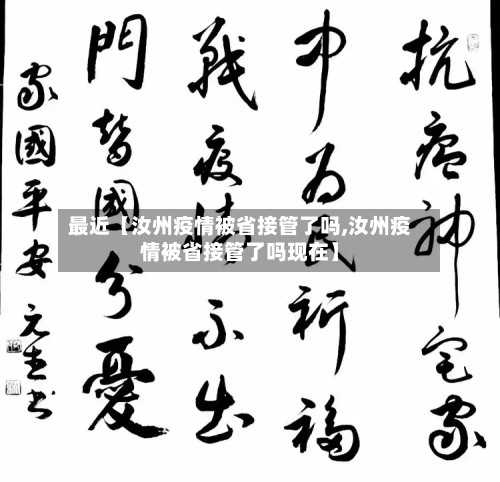 抗瘟神宅家
中为民祈福
戰疫情不出
門替國分憂
家國平安
元 书
最近【汝州疫情被省接管了吗,汝州疫
情被省接管了吗现在】